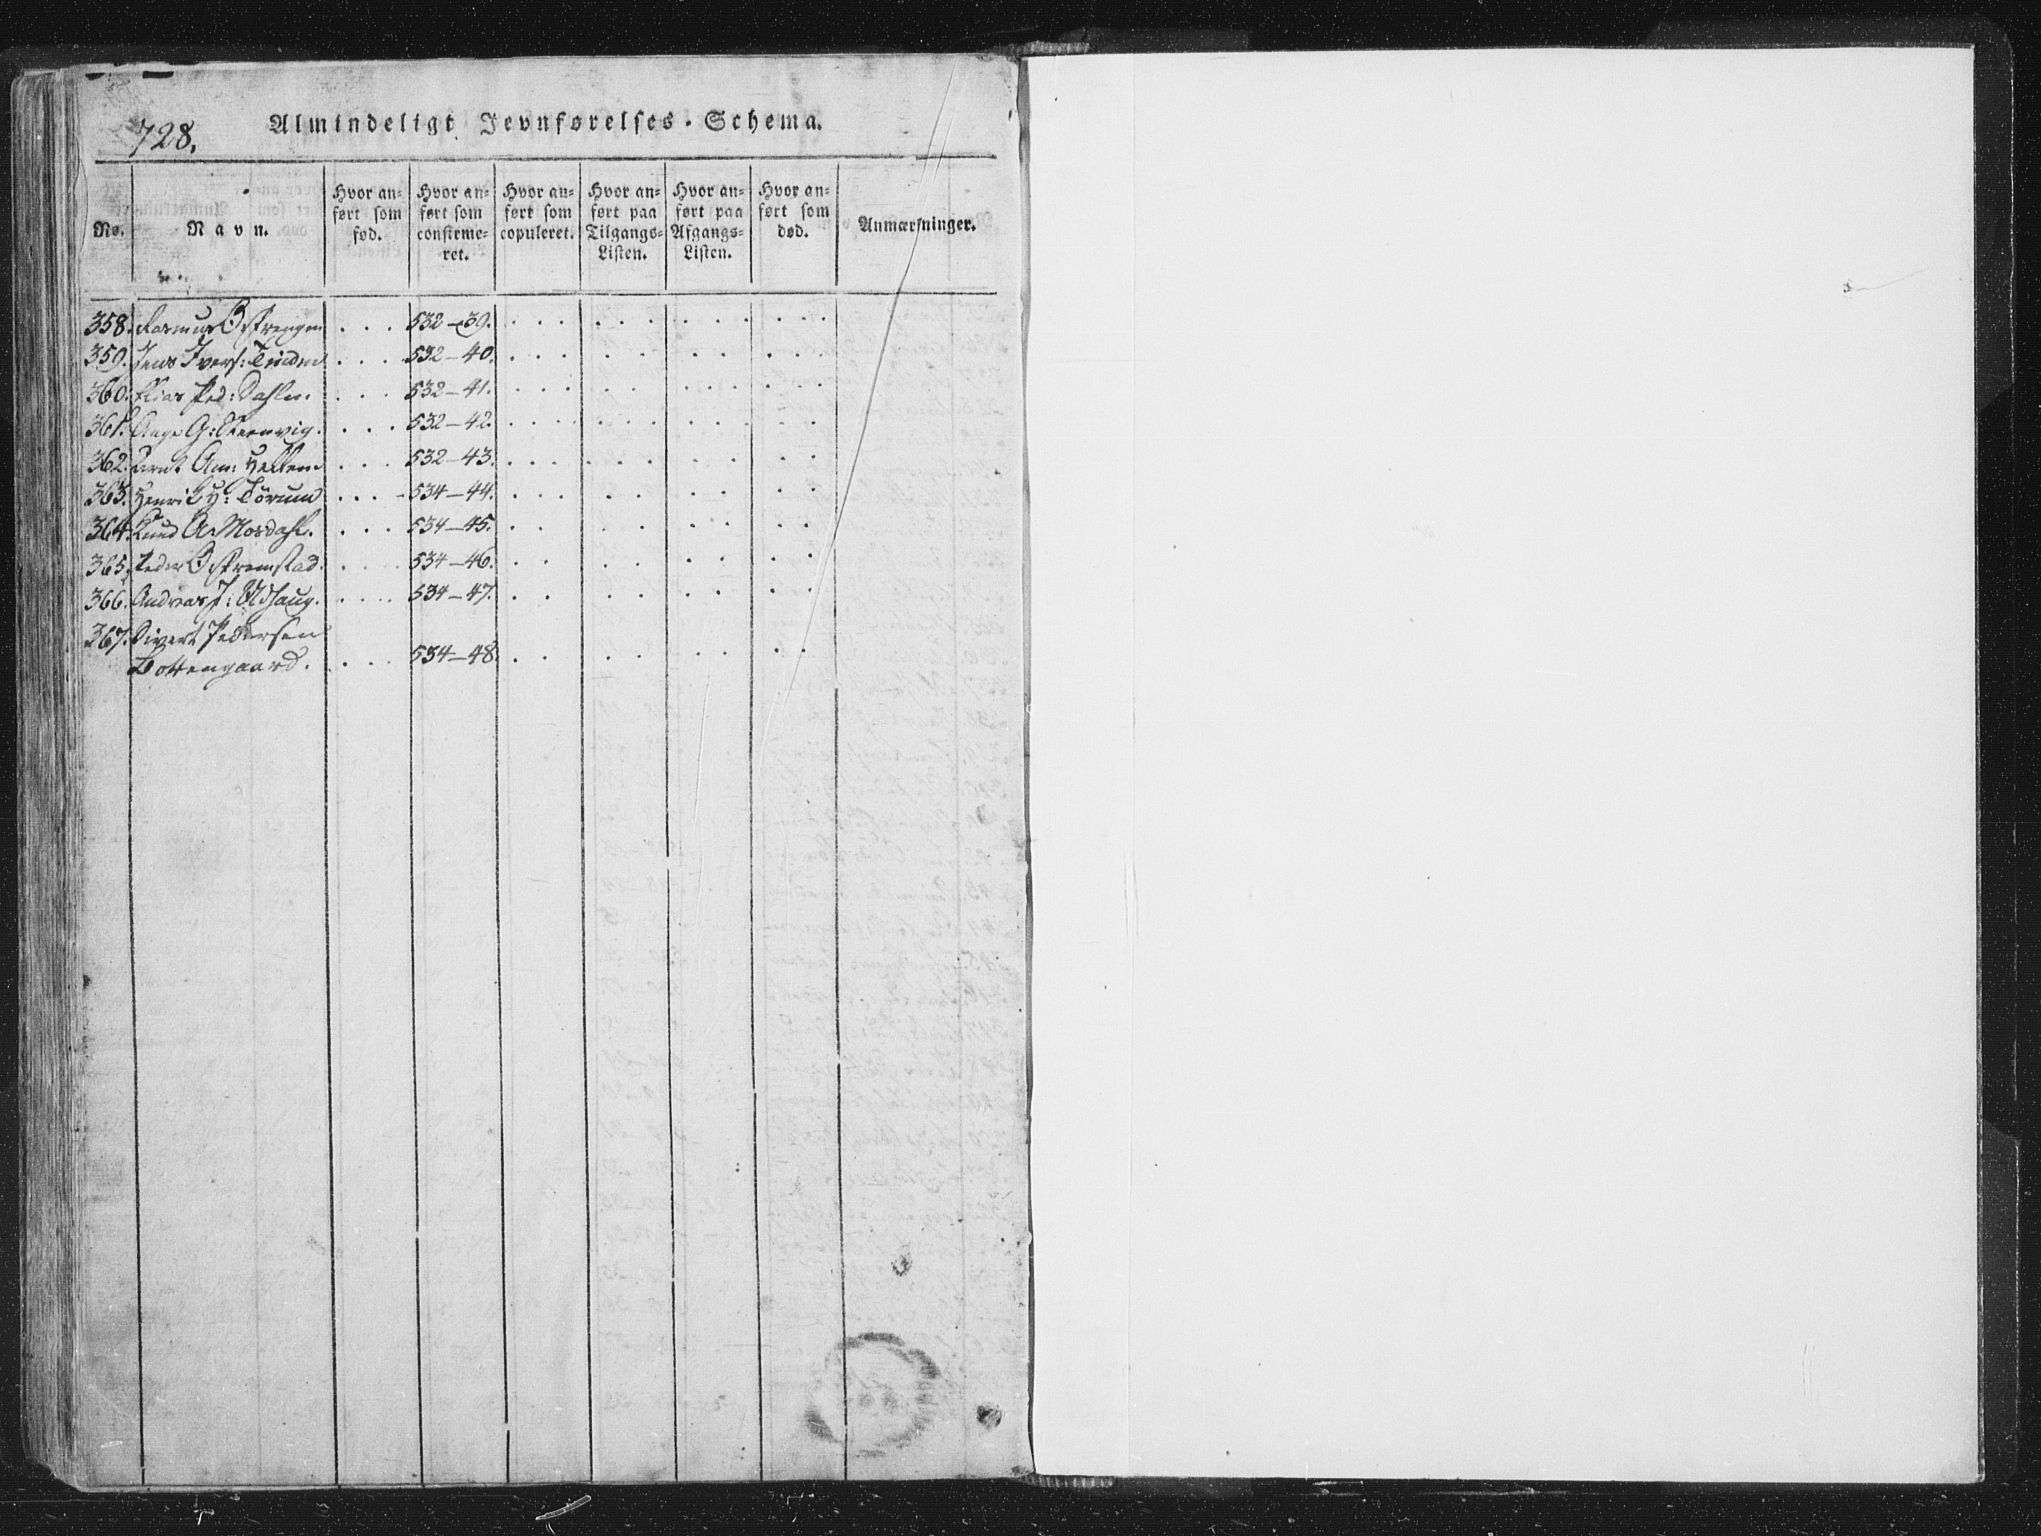 728.
Almindeligt Jevnførelses-Schema.
No.
Navn.
Hvor anført som fød.
Hvor anført som confirmeret.
Hvor anført som copuleret.
Hvor anført paa Tilgangs-Listen.
Hvor anført paa Afgangs-Listen.
Hvor anført som død.
Anmærkninger.
358. Rasmus 532-39.
359. Jens Ivers: 532-40.
360. Elias Ped: Dahlen. 532-41.
361. Aage G: Steenvig. 532-42.
362. Arnt 532-43.
363. Henrik H: Törum 534-44.
364. Knud A Mosdahl. 534-45.
365. Peder 534-46.
366. Andreas J: Udhaug. 534-47.
367. Sivert Pedersen
Bottengaard. 534-48.